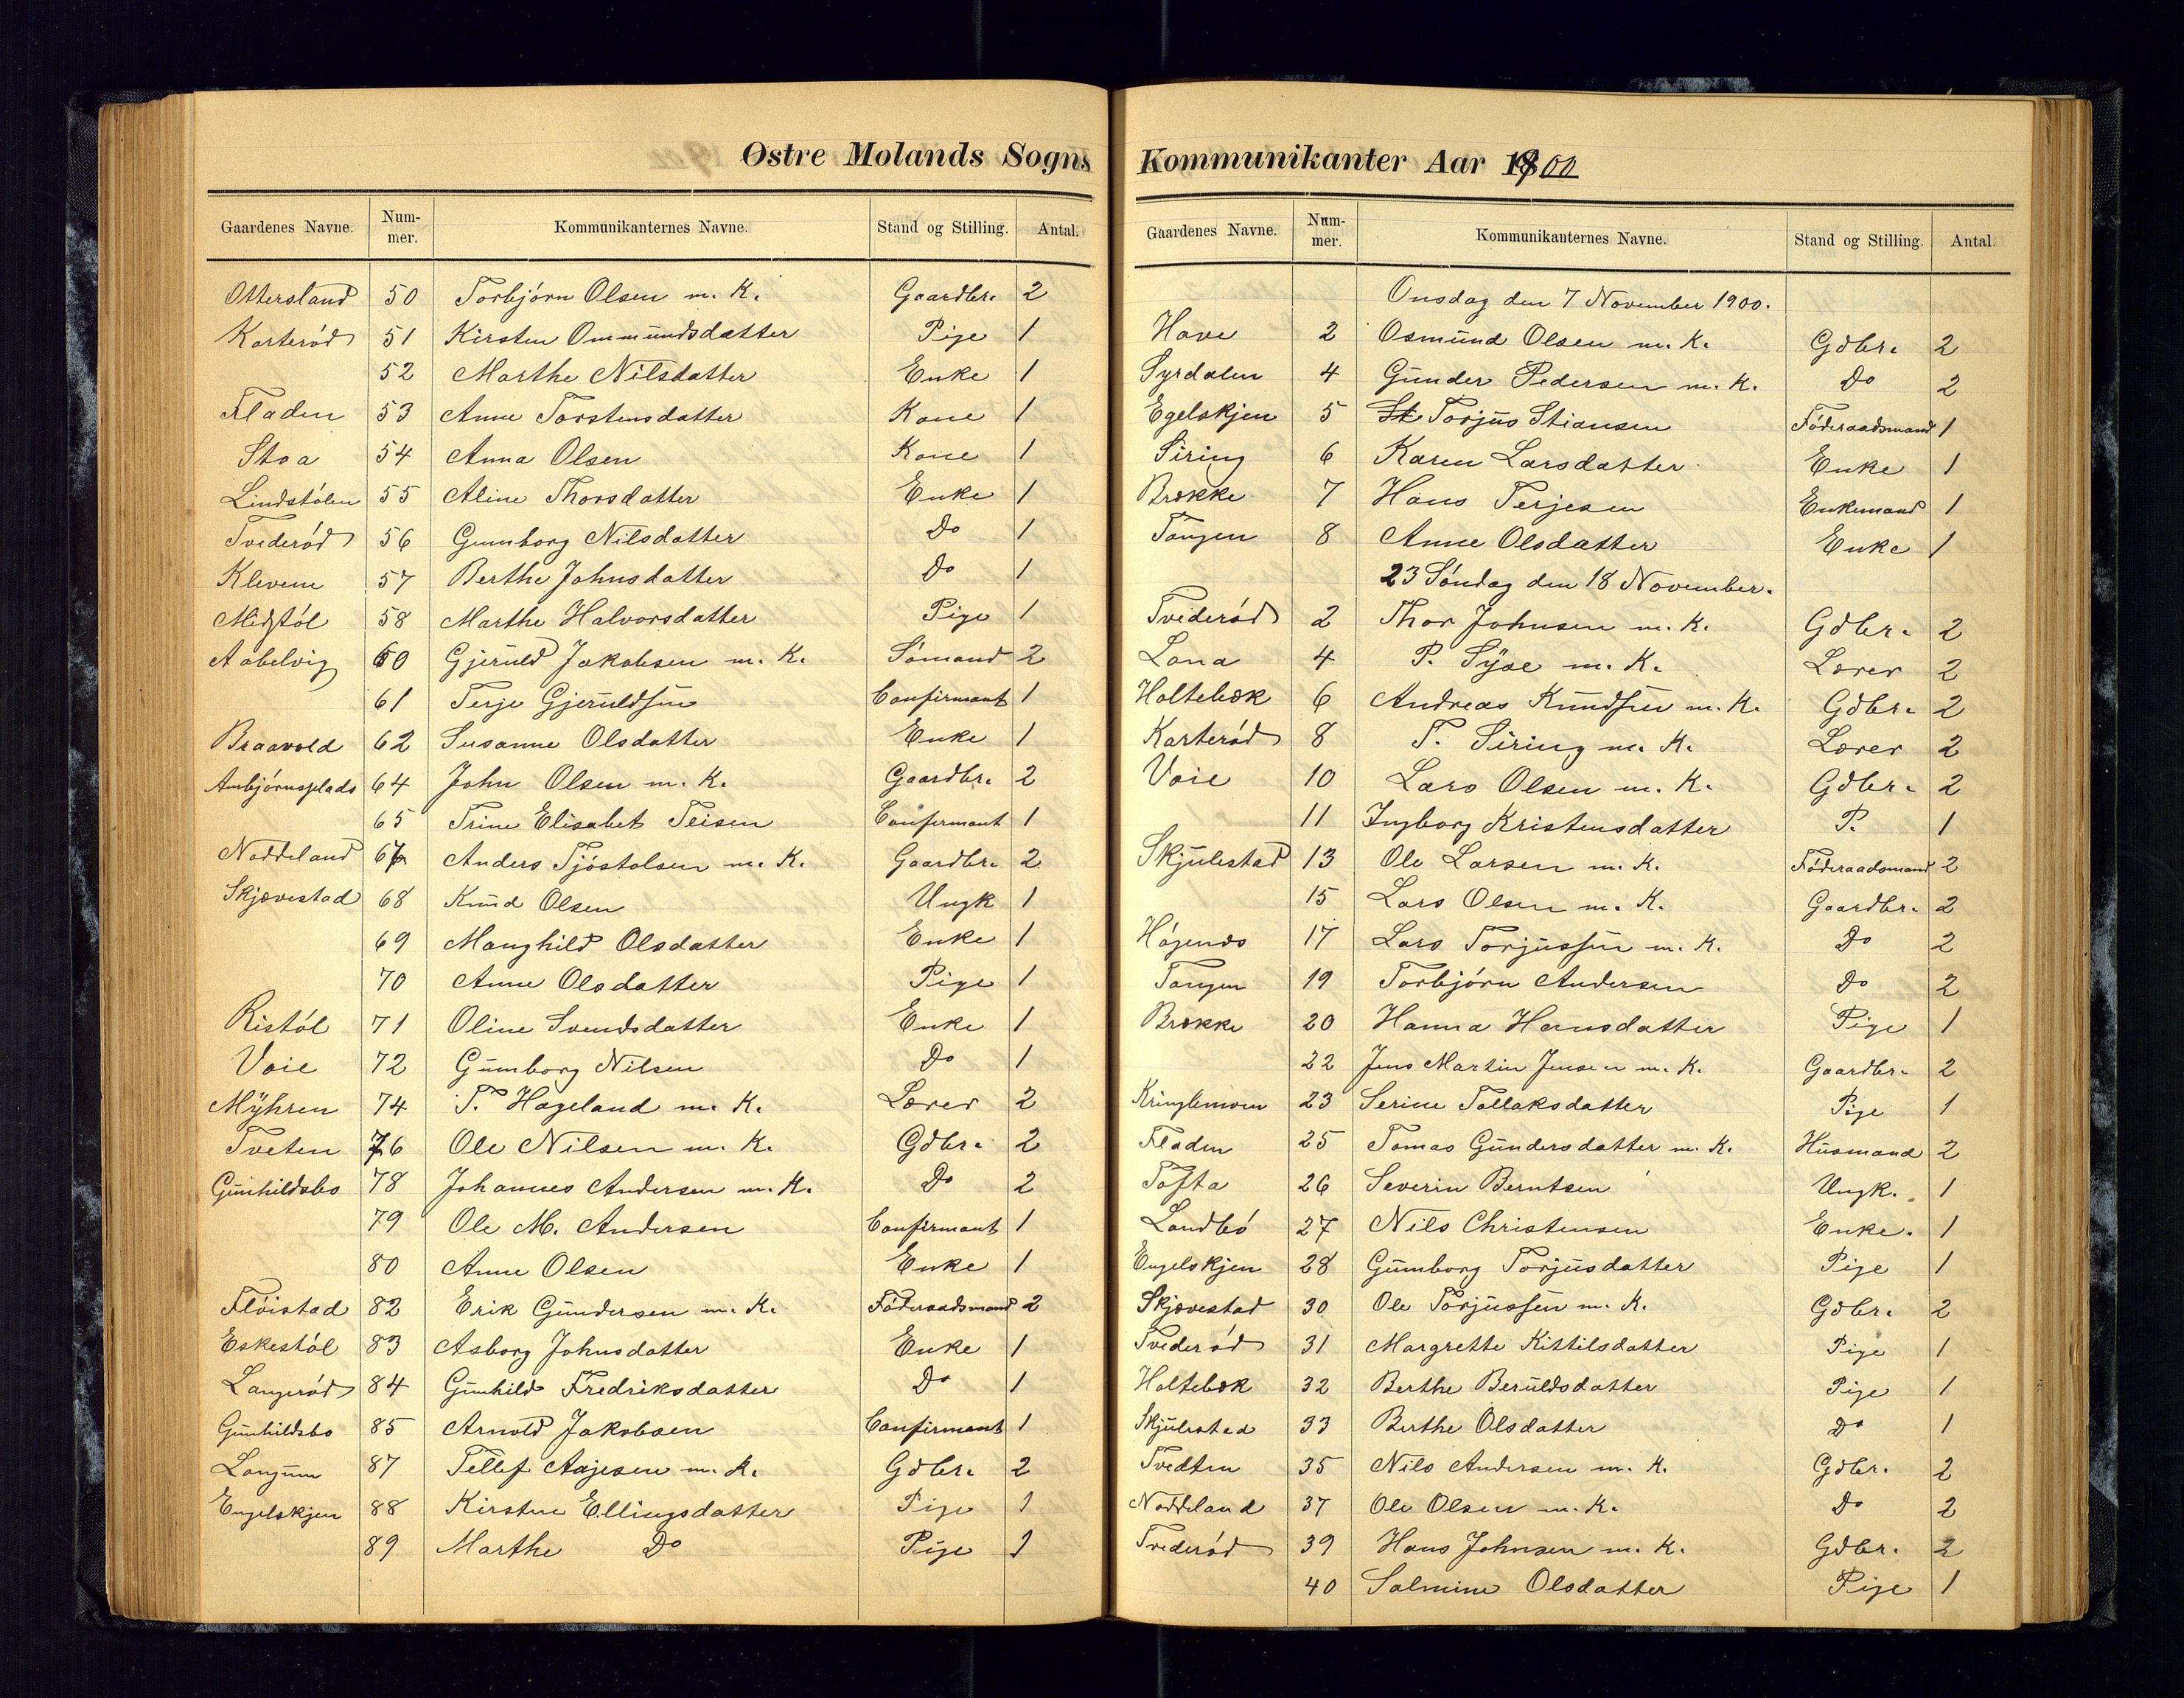 Østre Molands Sogns
Gaardenes Navne. Num-mer. Kommunikanternes Navne. Stand og Stilling. Antal.
Ottersland 50 Torbjörn Olsen m. K. Gaardbr. 2
Karteröd 51 Kirsten Ommundsdatter Pige 1
52 Marthe Nilsdatter Enke 1
Fladen 53 Anne Torstensdatter Kone 1
Stoa 54 Anna Olsen Kone 1
Lindstölen 55 Aline Thorsdatter Enke 1
Tvederöd 56 Gunborg Nilsdatter Do 1
Klevene 57 Berthe Johnsdatter Do 1
Midstöl 58 Marthe Halvorsdatter Pige 1
Aabelvig 60 Gjeruld Jakobsen m. K. Sömand 2
61 Terje Gjeruldsen Confirmant 1
Braavold 62 Susanne Olsdatter Enke 1
Ambjörnsplads 64 John Olsen m. K. Gaardbr. 2
65 Trine Elisabet Teisen Confirmant 1
Noddeland 67 Anders Tjöstolsen m. K. Gaardbr. 2
Skjævestad 68 Knud Olsen Ungk 1
69 Manghild Olsdatter Enke 1
70 Anne Olsdatter Pige 1
Ristöl 71 Oline Svendsdatter Enke 1
Vaie 72 Gumborg Nilsen Do 1
Myhren 74 T. Hageland m. K. Lærer 2
Tveten 76 Ole Nilsen m. K. Gdbr. 2
Gunhildsbo 78 Johannes Andersen m. K. Do 2
79 Ole M. Andersen Confirmant 1
80 Anne Olsen Enke 1
Flöistad 82 Erik Gundersen m. K. Föderaadsmand 2
Eskestöl 83 Asborg Johnsdatter Enke 1
Langeröd 84 Gunhild Fredriksdatter Do 1
Gunhildsbo 85 Arnold Jakobsen Confirmant 1
Langum 87 Tellef Aajesen m. K. Gdbr. 2
Engelskjen 88 Kirstine Ellingsdatter Pige 1
89 Marthe Do Pige 1
Kommunikanter Aar 1900
Gaardenes Navne. Num-mer. Kommunikanternes Navne. Stand og Stilling. Antal.
Onsdag den 7 November 1900.
Have 2 Osmund Olsen m. K. Gdbr. 2
Syrdalen 4 Gunder Pedersen m. K. Do 2
Egelskjen 5 St Torjus Stiansen Föderaadsmand 1
Siring 6 Karen Larsdatter Enke 1
Brække 7 Hans Terjesen Enkemand 1
Tangen 8 Anne Olsdatter Enke 1
23 Söndag den 18 November.
Tvederöd 2 Thor Johnsen m. K. Gdbr. 2
Lana 4 P. Syse m. K. Lærer 2
Holtebæk 6 Andreas Knudsen m. K. Gdbr. 2
Karteröd 8 T. Siring m. K. Lærer 2
Vaie 10 Lars Olsen m. K. Gdbr. 2
11 Ingborg Kristensdatter P. 1
Skjulestad 13 Ole Larsen m. K. Föderaadsmand 2
15 Lars Olsen m. K. Gaardbr. 2
Högenes 17 Lars Torjussen m. K. Do 2
Tangen 19 Torbjörn Andersen Do 2
Brække 20 Hanna Hansdatter Pige 1
22 Jens Martin Jensen m. K. Gaardbr. 2
Kringlemoen 23 Serine Tallaksdatter Pige 1
Fladen 25 Tomas Gundersdatter m. K. Husmand 2
Tofta 26 Severin Berntsen Ungk. 1
Landbö 27 Nils Christensen Enke. 1
Engelskjen 28 Gumborg Torjusdatter Pige 1
Skjævestad 30 Ole Torjussen m. K. Gdbr. 2
Tvederöd 31 Margrette Kittilsdatter Pige 1
Holtebæk 32 Berthe Beruldsdatter Pige 1
Skjulestad 33 Berthe Olsdatter Do 1
Tvedten 35 Nils Andersen m. K. Gdbr. 2
Noddeland 37 Ole Olsen m. K. Do 2
Tvederöd 39 Hans Johnsen m. K. Gdbr. 2
40 Salmine Olsdatter Pige 1